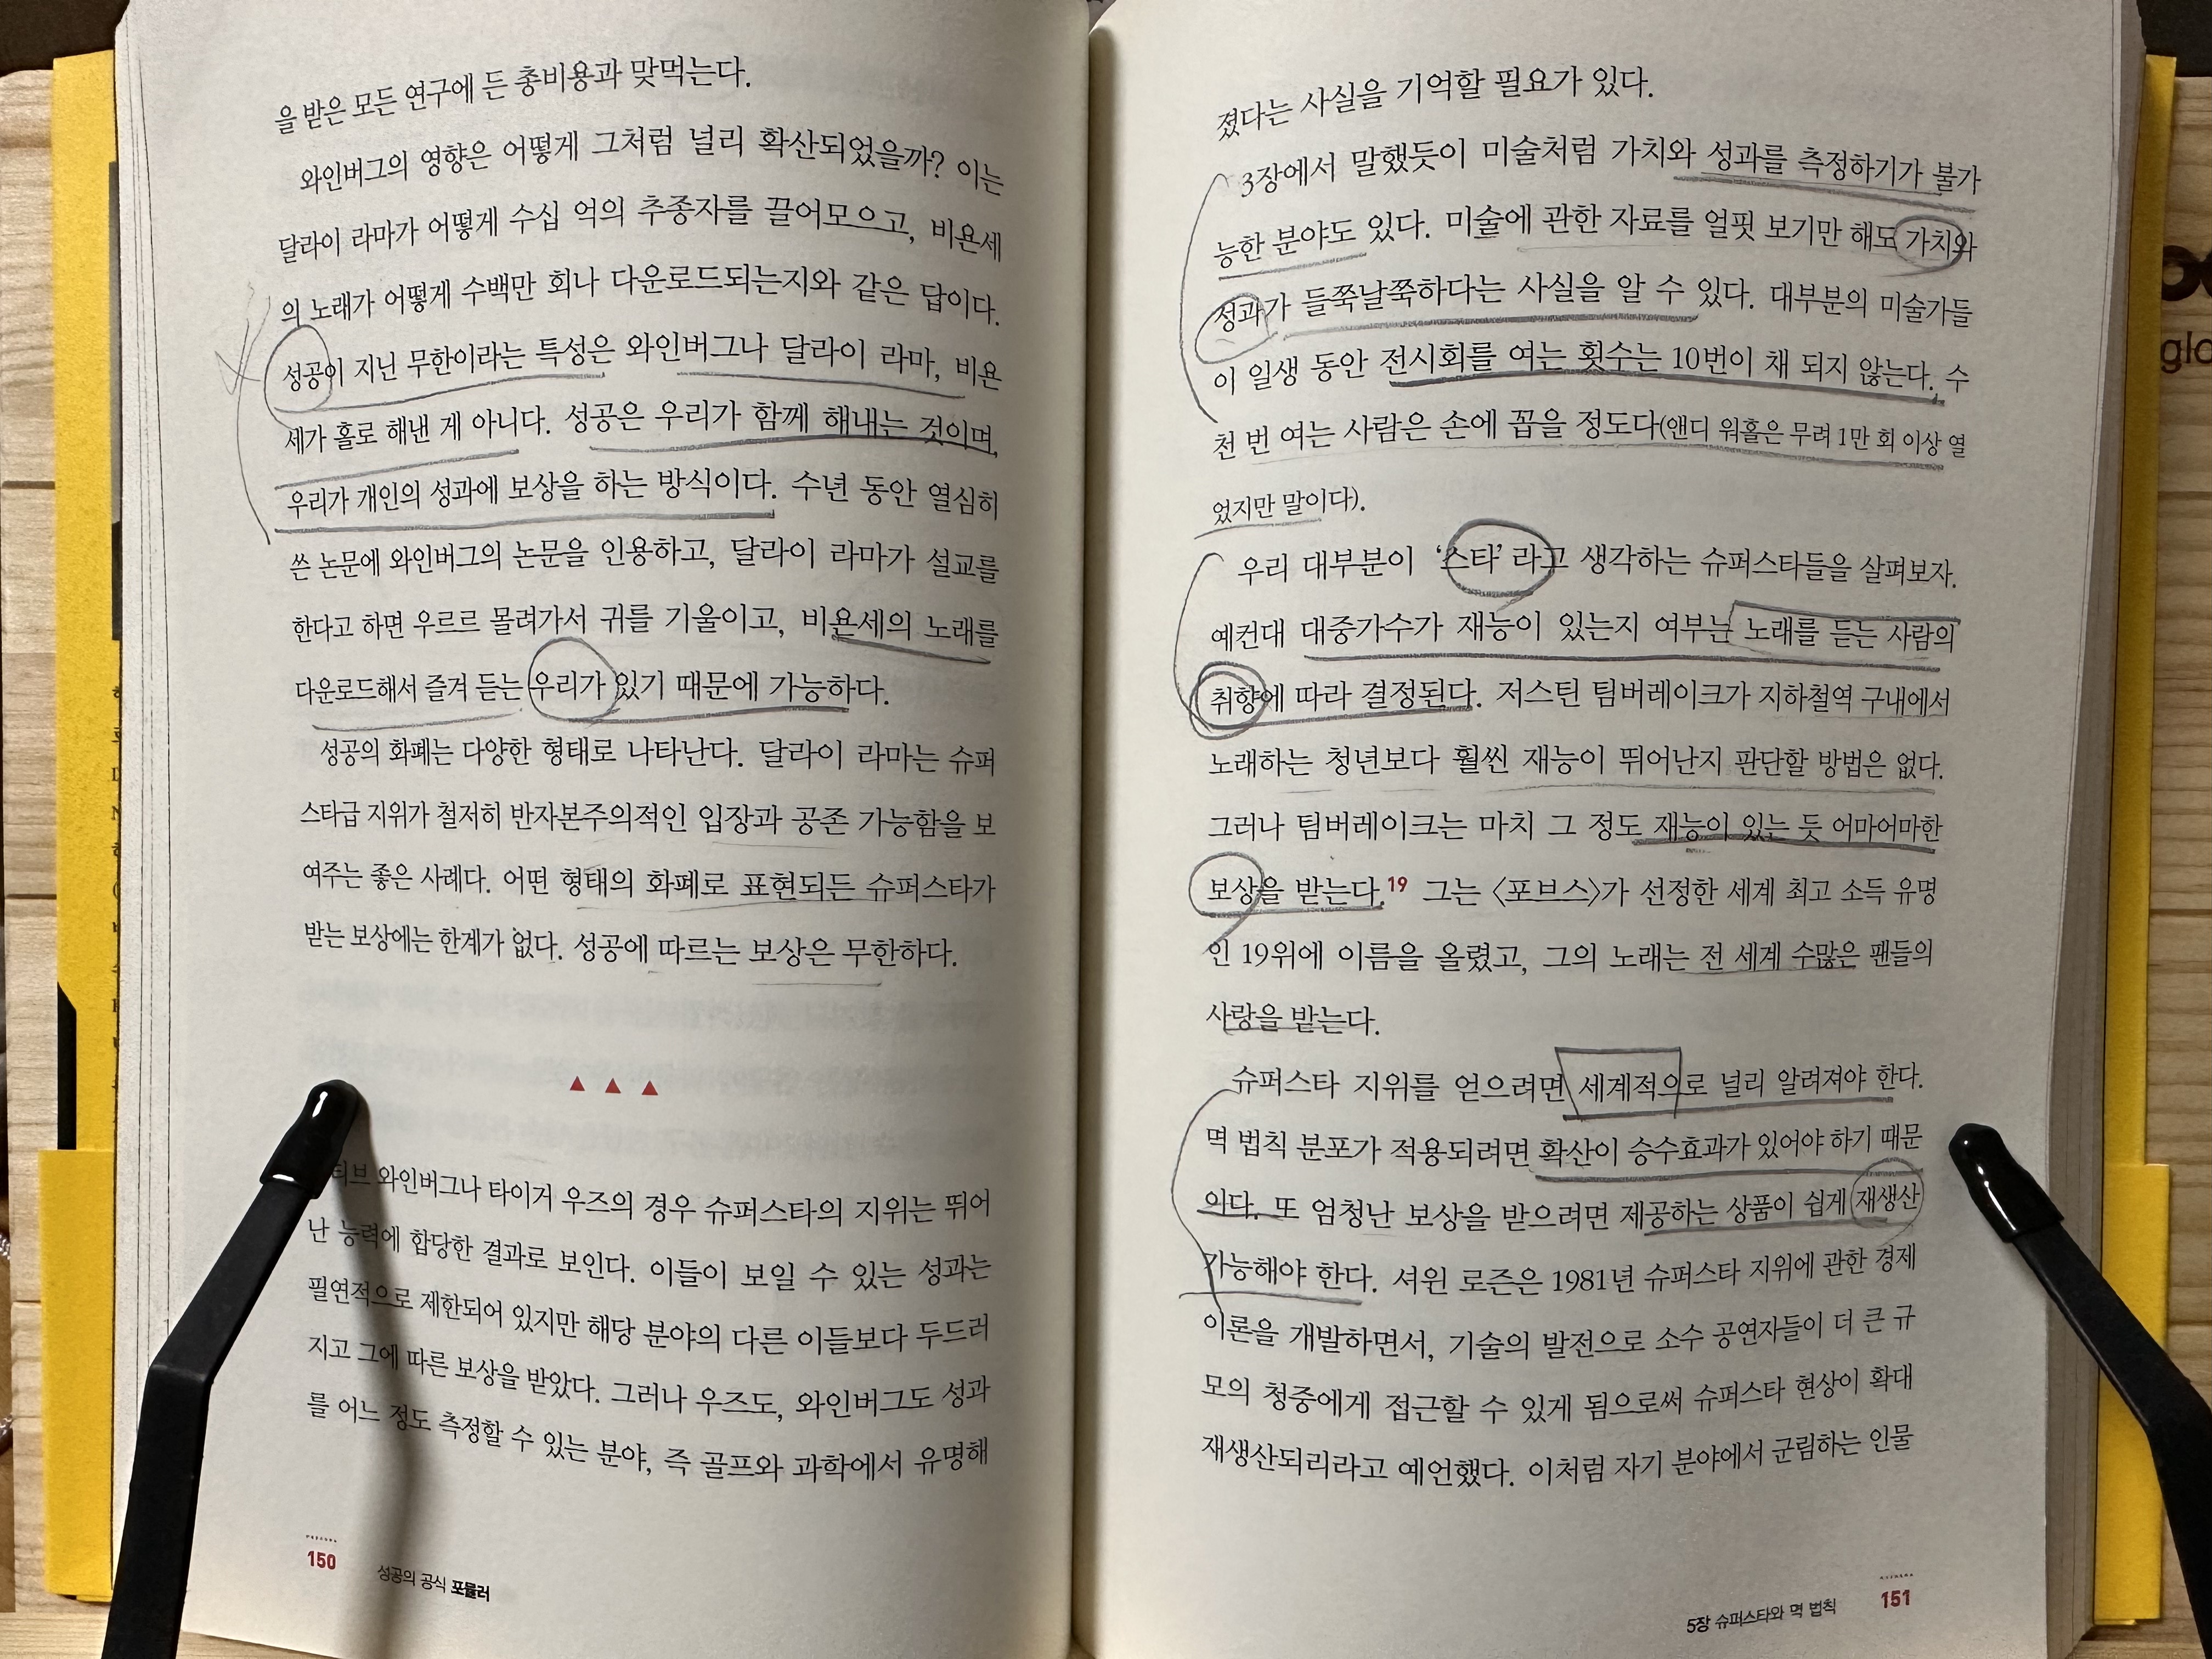 을 받은 모든 연구에 든 총비용과 맞먹는다.
와인버그의 영향은 어떻게 그처럼 널리 확산되었을까? 이는
달라이 라마가 어떻게 수십 억의 추종자를 끌어모으고, 비욘세
의 노래가 어떻게 수백만 회나 다운로드되는지와 같은 답이다.
성공이 지닌 무한이라는 특성은 와인버그나 달라이 라마, 비욘
세가 홀로 해낸 게 아니다. 성공은 우리가 함께 해내는 것이며,
우리가 개인의 성과에 보상을 하는 방식이다. 수년 동안 열심히
쓴 논문에 와인버그의 논문을 인용하고, 달라이 라마가 설교를
한다고 하면 우르르 몰려가서 귀를 기울이고, 비욘세의 노래를
다운로드해서 즐겨 듣는 우리가 있기 때문에 가능하다.
성공의 화폐는 다양한 형태로 나타난다. 달라이 라마는 슈퍼
스타급 지위가 철저히 반자본주의적인 입장과 공존 가능함을 보
여주는 좋은 사례다. 어떤 형태의 화폐로 표현되든 슈퍼스타가
받는 보상에는 한계가 없다. 성공에 따르는 보상은 무한하다.
▲ ▲ ▲
티브 와인버그나 타이거 우즈의 경우 슈퍼스타의 지위는 뛰어
난 능력에 합당한 결과로 보인다. 이들이 보일 수 있는 성과는
필연적으로 제한되어 있지만 해당 분야의 다른 이들보다 두드러
지고 그에 따른 보상을 받았다. 그러나 우즈도, 와인버그도 성과
를 어느 정도 측정할 수 있는 분야, 즉 골프와 과학에서 유명해
150 성공의 공식 포뮬러
졌다는 사실을 기억할 필요가 있다.
3장에서 말했듯이 미술처럼 가치와 성과를 측정하기가 불가
능한 분야도 있다. 미술에 관한 자료를 얼핏 보기만 해도 가치와
성과가 들쭉날쭉하다는 사실을 알 수 있다. 대부분의 미술가들
이 일생 동안 전시회를 여는 횟수는 10번이 채 되지 않는다. 수
천 번 여는 사람은 손에 꼽을 정도다(앤디 워홀은 무려 1만 회 이상 열
었지만 말이다).
우리 대부분이 ‘스타’라고 생각하는 슈퍼스타들을 살펴보자.
예컨대 대중가수가 재능이 있는지 여부는 노래를 듣는 사람의
취향에 따라 결정된다. 저스틴 팀버레이크가 지하철역 구내에서
노래하는 청년보다 훨씬 재능이 뛰어난지 판단할 방법은 없다.
그러나 팀버레이크는 마치 그 정도 재능이 있는 듯 어마어마한
보상을 받는다.19 그는 〈포브스〉가 선정한 세계 최고 소득 유명
인 19위에 이름을 올렸고, 그의 노래는 전 세계 수많은 팬들의
사랑을 받는다.
슈퍼스타 지위를 얻으려면 세계적으로 널리 알려져야 한다.
멱 법칙 분포가 적용되려면 확산이 승수효과가 있어야 하기 때문
이다. 또 엄청난 보상을 받으려면 제공하는 상품이 쉽게 재생산
가능해야 한다. 셔윈 로즌은 1981년 슈퍼스타 지위에 관한 경제
이론을 개발하면서, 기술의 발전으로 소수 공연자들이 더 큰 규
모의 청중에게 접근할 수 있게 됨으로써 슈퍼스타 현상이 확대
재생산되리라고 예언했다. 이처럼 자기 분야에서 군림하는 인물
5장 슈퍼스타와 멱 법칙 151
glo